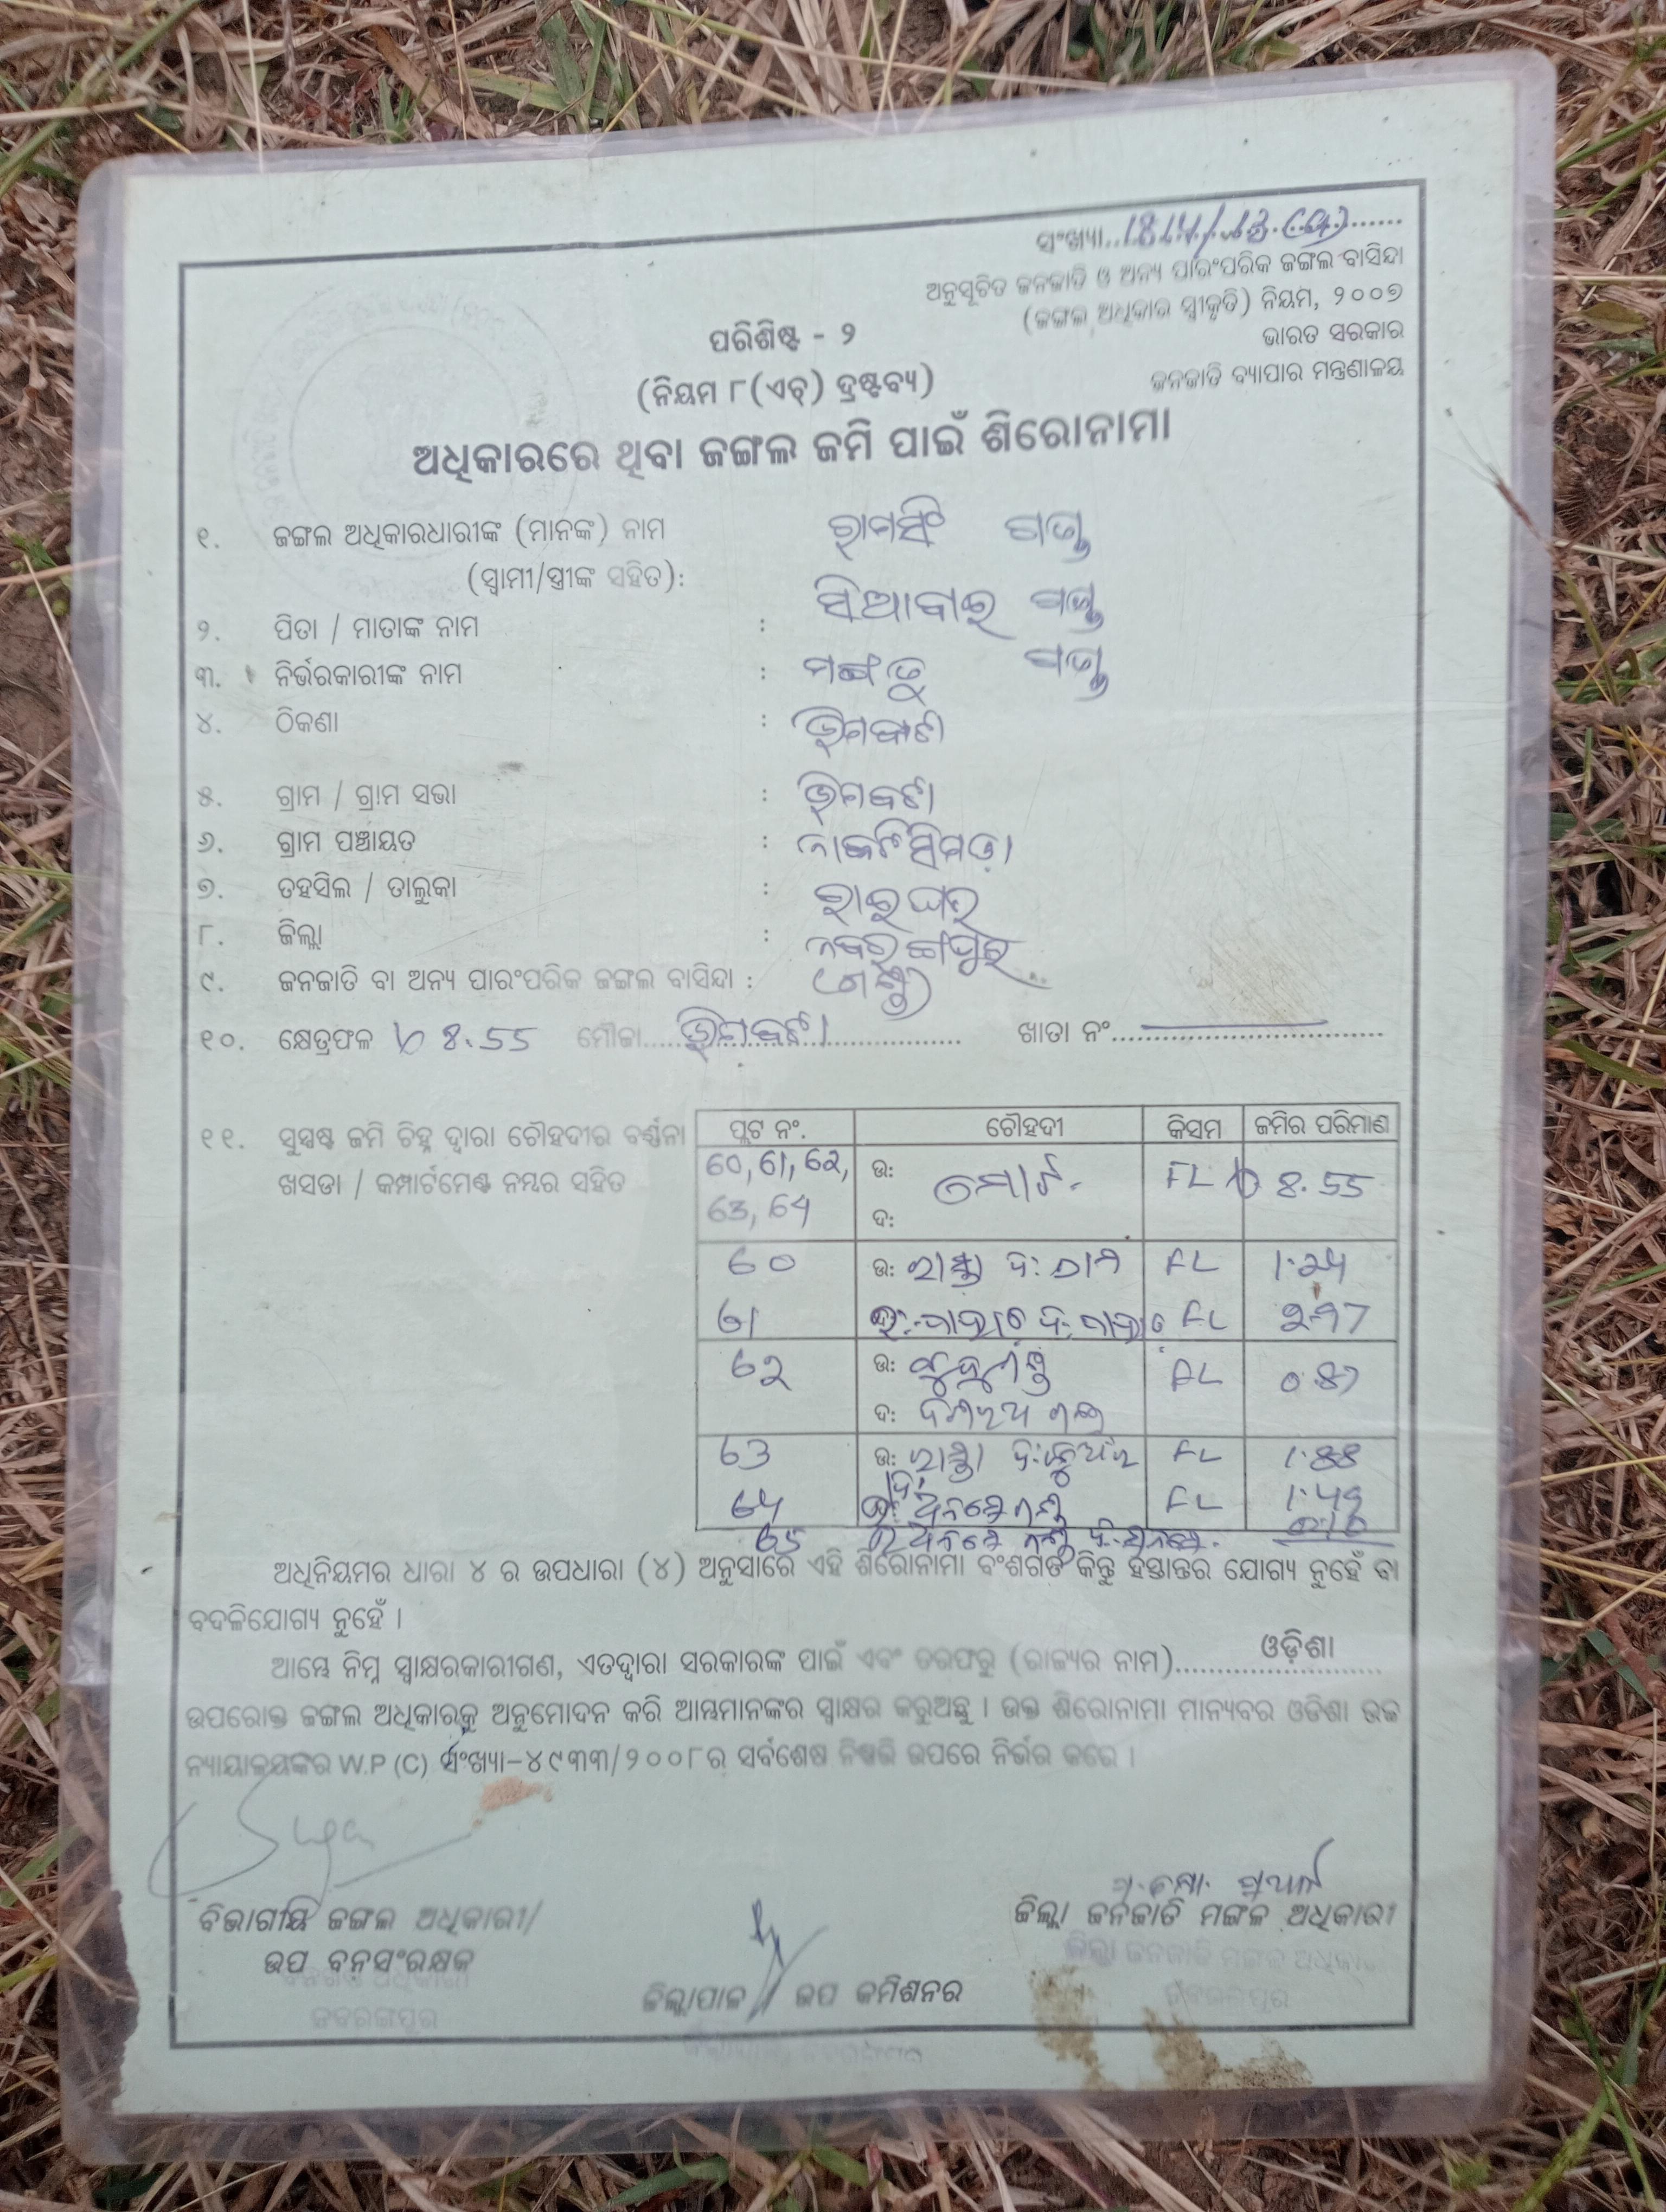 ସଂଖ୍ୟା..1814/13
ଅନୁସୂଚିତ ଜନଜାତି ଓ ଅନ୍ୟ ପାରଂପରିକ ଜଙ୍ଗଲ ବାସିନ୍ଦା
(ଜଙ୍ଗଲ ଅଧିକାର ସ୍ୱୀକୃତି) ନିୟମ, ୨୦୦୭
ଭାରତ ସରକାର
ଜନଜାତି ବ୍ୟାପାର ମନ୍ତ୍ରଣାଳୟ
ପରିଶିଷ୍ଟ - ୨
(ନିୟମ ୮(ଏଚ୍) ଦ୍ରଷ୍ଟବ୍ୟ)
ଅଧିକାରରେ ଥିବା ଜଙ୍ଗଲ ଜମି ପାଇଁ ଶିରୋନାମା
୧. ଜଙ୍ଗଲ ଅଧିକାରଧାରୀଙ୍କ (ମାନଙ୍କ) ନାମ ରାମସିଂ ଗଣ୍ଡ
(ସ୍ୱାମୀ/ସ୍ତ୍ରୀଙ୍କ ସହିତ): ସିଆବାଇ ଗଣ୍ଡ
୨. ପିତା / ମାତାଙ୍କ ନାମ : ମଙ୍ଗତୁ ଗଣ୍ଡ
୩. ନିର୍ଭରକାରୀଙ୍କ ନାମ :
୪. ଠିକଣା :
୫. ଗ୍ରାମ / ଗ୍ରାମ ସଭା :
୬. ଗ୍ରାମ ପଞ୍ଚାୟତ :
୭. ତହସିଲ / ତାଲୁକା : ରାଇଘର
୮. ଜିଲ୍ଲା : ନବରଙ୍ଗପୁର
୯. ଜନଜାତି ବା ଅନ୍ୟ ପାରଂପରିକ ଜଙ୍ଗଲ ବାସିନ୍ଦା : (ଗଣ୍ଡ)
୧୦. କ୍ଷେତ୍ରଫଳ 8.55 ମୌଜା.......... ଖାତା ନଂ..........
୧୧. ସୁସ୍ପଷ୍ଟ ଜମି ଚିହ୍ନ ଦ୍ୱାରା ଚୌହଦୀର ବର୍ଣ୍ଣନା
ଖସଡା / କମ୍ପାର୍ଟମେଣ୍ଟ ନମ୍ବର ସହିତ
ପ୍ଲଟ ନଂ. ଚୌହଦୀ କିସମ ଜମିର ପରିମାଣ
60, 61, 62, ଉ: ମୋଟ- FL 8.55
63, 64 ଦ:
60 ଉ: ରାସ୍ତା ଦ: FL 1.24
61 FL
62 ଉ: FL 0.87
ଦ:
63 ଉ: ରାସ୍ତା ଦ: FL 1.88
64 FL 1.49
65
ଅଧିନିୟମର ଧାରା ୪ ର ଉପଧାରା (୪) ଅନୁସାରେ ଏହି ଶିରୋନାମା ବଂଶଗତ କିନ୍ତୁ ହସ୍ତାନ୍ତର ଯୋଗ୍ୟ ନୁହେଁ ବା
ବଦଳିଯୋଗ୍ୟ ନୁହେଁ ।
ଆମ୍ଭେ ନିମ୍ନ ସ୍ୱାକ୍ଷରକାରୀଗଣ, ଏତଦ୍ଦ୍ୱାରା ସରକାରଙ୍କ ପାଇଁ ଏବଂ ତରଫରୁ (ରାଜ୍ୟର ନାମ)......ଓଡ଼ିଶା......
ଉପରୋକ୍ତ ଜଙ୍ଗଲ ଅଧିକାରକୁ ଅନୁମୋଦନ କରି ଆମ୍ଭମାନଙ୍କର ସ୍ୱାକ୍ଷର କରୁଅଛୁ । ଉକ୍ତ ଶିରୋନାମା ମାନ୍ୟବର ଓଡିଶା ଉଚ୍ଚ
ନ୍ୟାୟାଳୟଙ୍କର W.P (C) ସଂଖ୍ୟା-୪୯୩୩/୨୦୦୮ର ସର୍ବଶେଷ ନିଷ୍ପତ୍ତି ଉପରେ ନିର୍ଭର କରେ ।
ବିଭାଗୀୟ ଜଙ୍ଗଲ ଅଧିକାରୀ/
ଉପ ବନସଂରକ୍ଷକ
ଜିଲ୍ଲାପାଳ / ଉପ କମିଶନର
ଜିଲ୍ଲା ଜନଜାତି ମଙ୍ଗଳ ଅଧିକାରୀ
ଜିଲ୍ଲା ଜନଜାତି ମଙ୍ଗଳ ଅଧିକାରୀ
ନବରଙ୍ଗପୁର